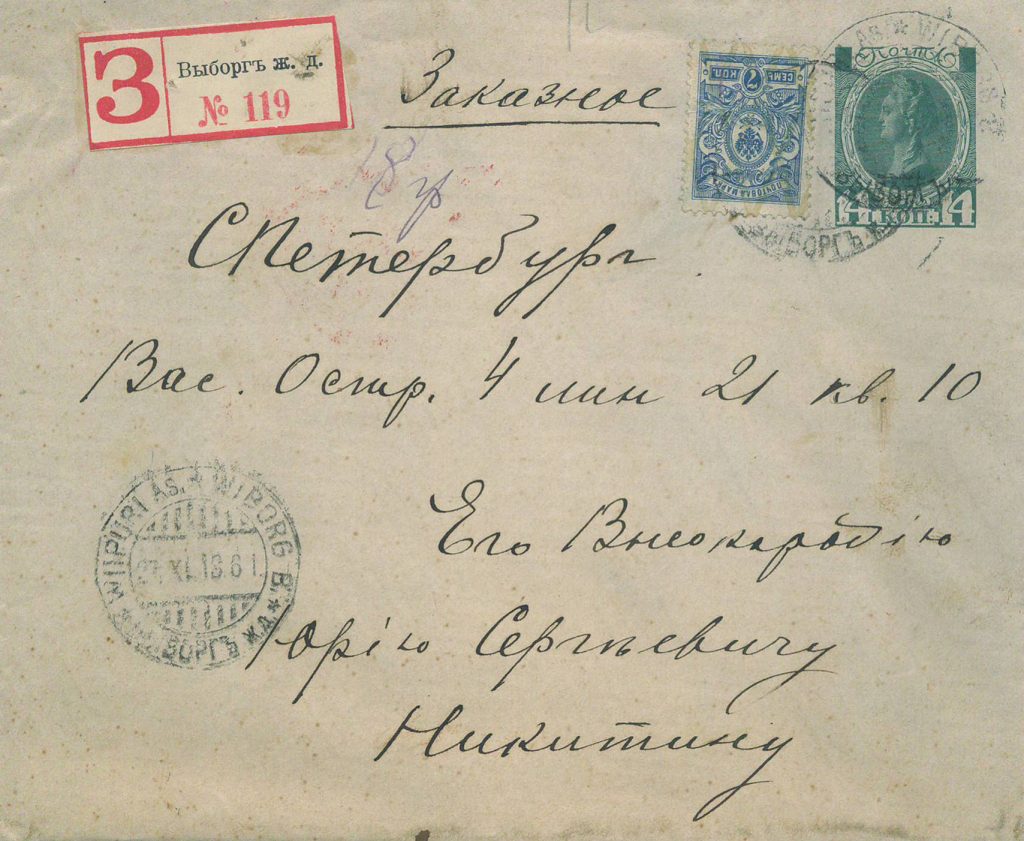 З
Выборгъ ж. д.
№ 119
Заказное
СЕМЬ 7 КОП.
ПОЧТОВАЯ МАРКА
Почта
14 КОП: 14
СПетербург
Вас. Остр. 4 лин 21 кв. 10
Его Высокородiю
Юрiю Сергѣевичу
Никитину
WIIPURI As. * WIBORG B.
XI.13.6 I.
ВЫБОРГЪ Ж.Д.
ВЫБОРГЪ